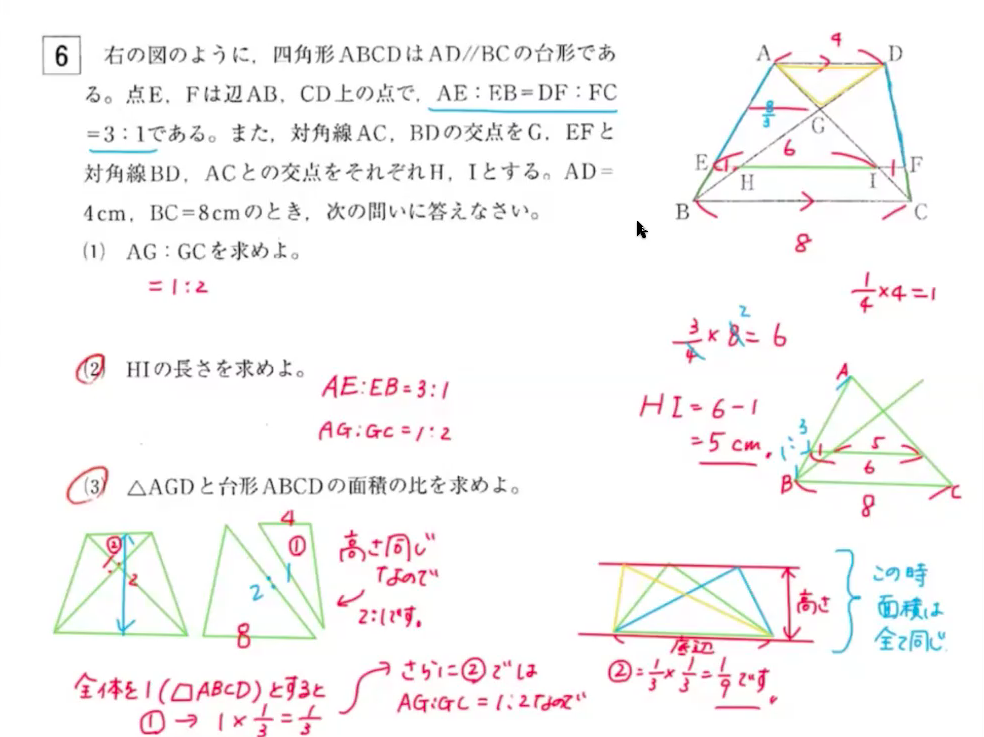 6 右の図のように，四角形ABCDはAD//BCの台形であ
る。点E，Fは辺AB，CD上の点で，AE：EB＝DF：FC
＝3：1である。また，対角線AC，BDの交点をG，EFと
対角線BD，ACとの交点をそれぞれH，Iとする。AD＝
4cm，BC＝8cmのとき，次の問いに答えなさい。
(1) AG：GCを求めよ。
＝1:2
(2) HIの長さを求めよ。
AE:EB＝3:1
AG:GC＝1:2
(3) △AGDと台形ABCDの面積の比を求めよ。
A 4 D
8/3
G
E 1 6 1 F
H I
B C
8
1/4×4＝1
3/4×8＝6
2
HI＝6－1
＝5cm。
A
3
1: 1 5
6
B C
8
② 1 2
4
①
1
2
8
高さ同じ
なので
2:1です。
高さ
底辺
この時
面積は
全て同じ
全体を1（□ABCD）とすると
①→ 1×1/3＝1/3
さらに②では
AG:GC＝1:2なので
②＝1/3×1/3＝1/9です。